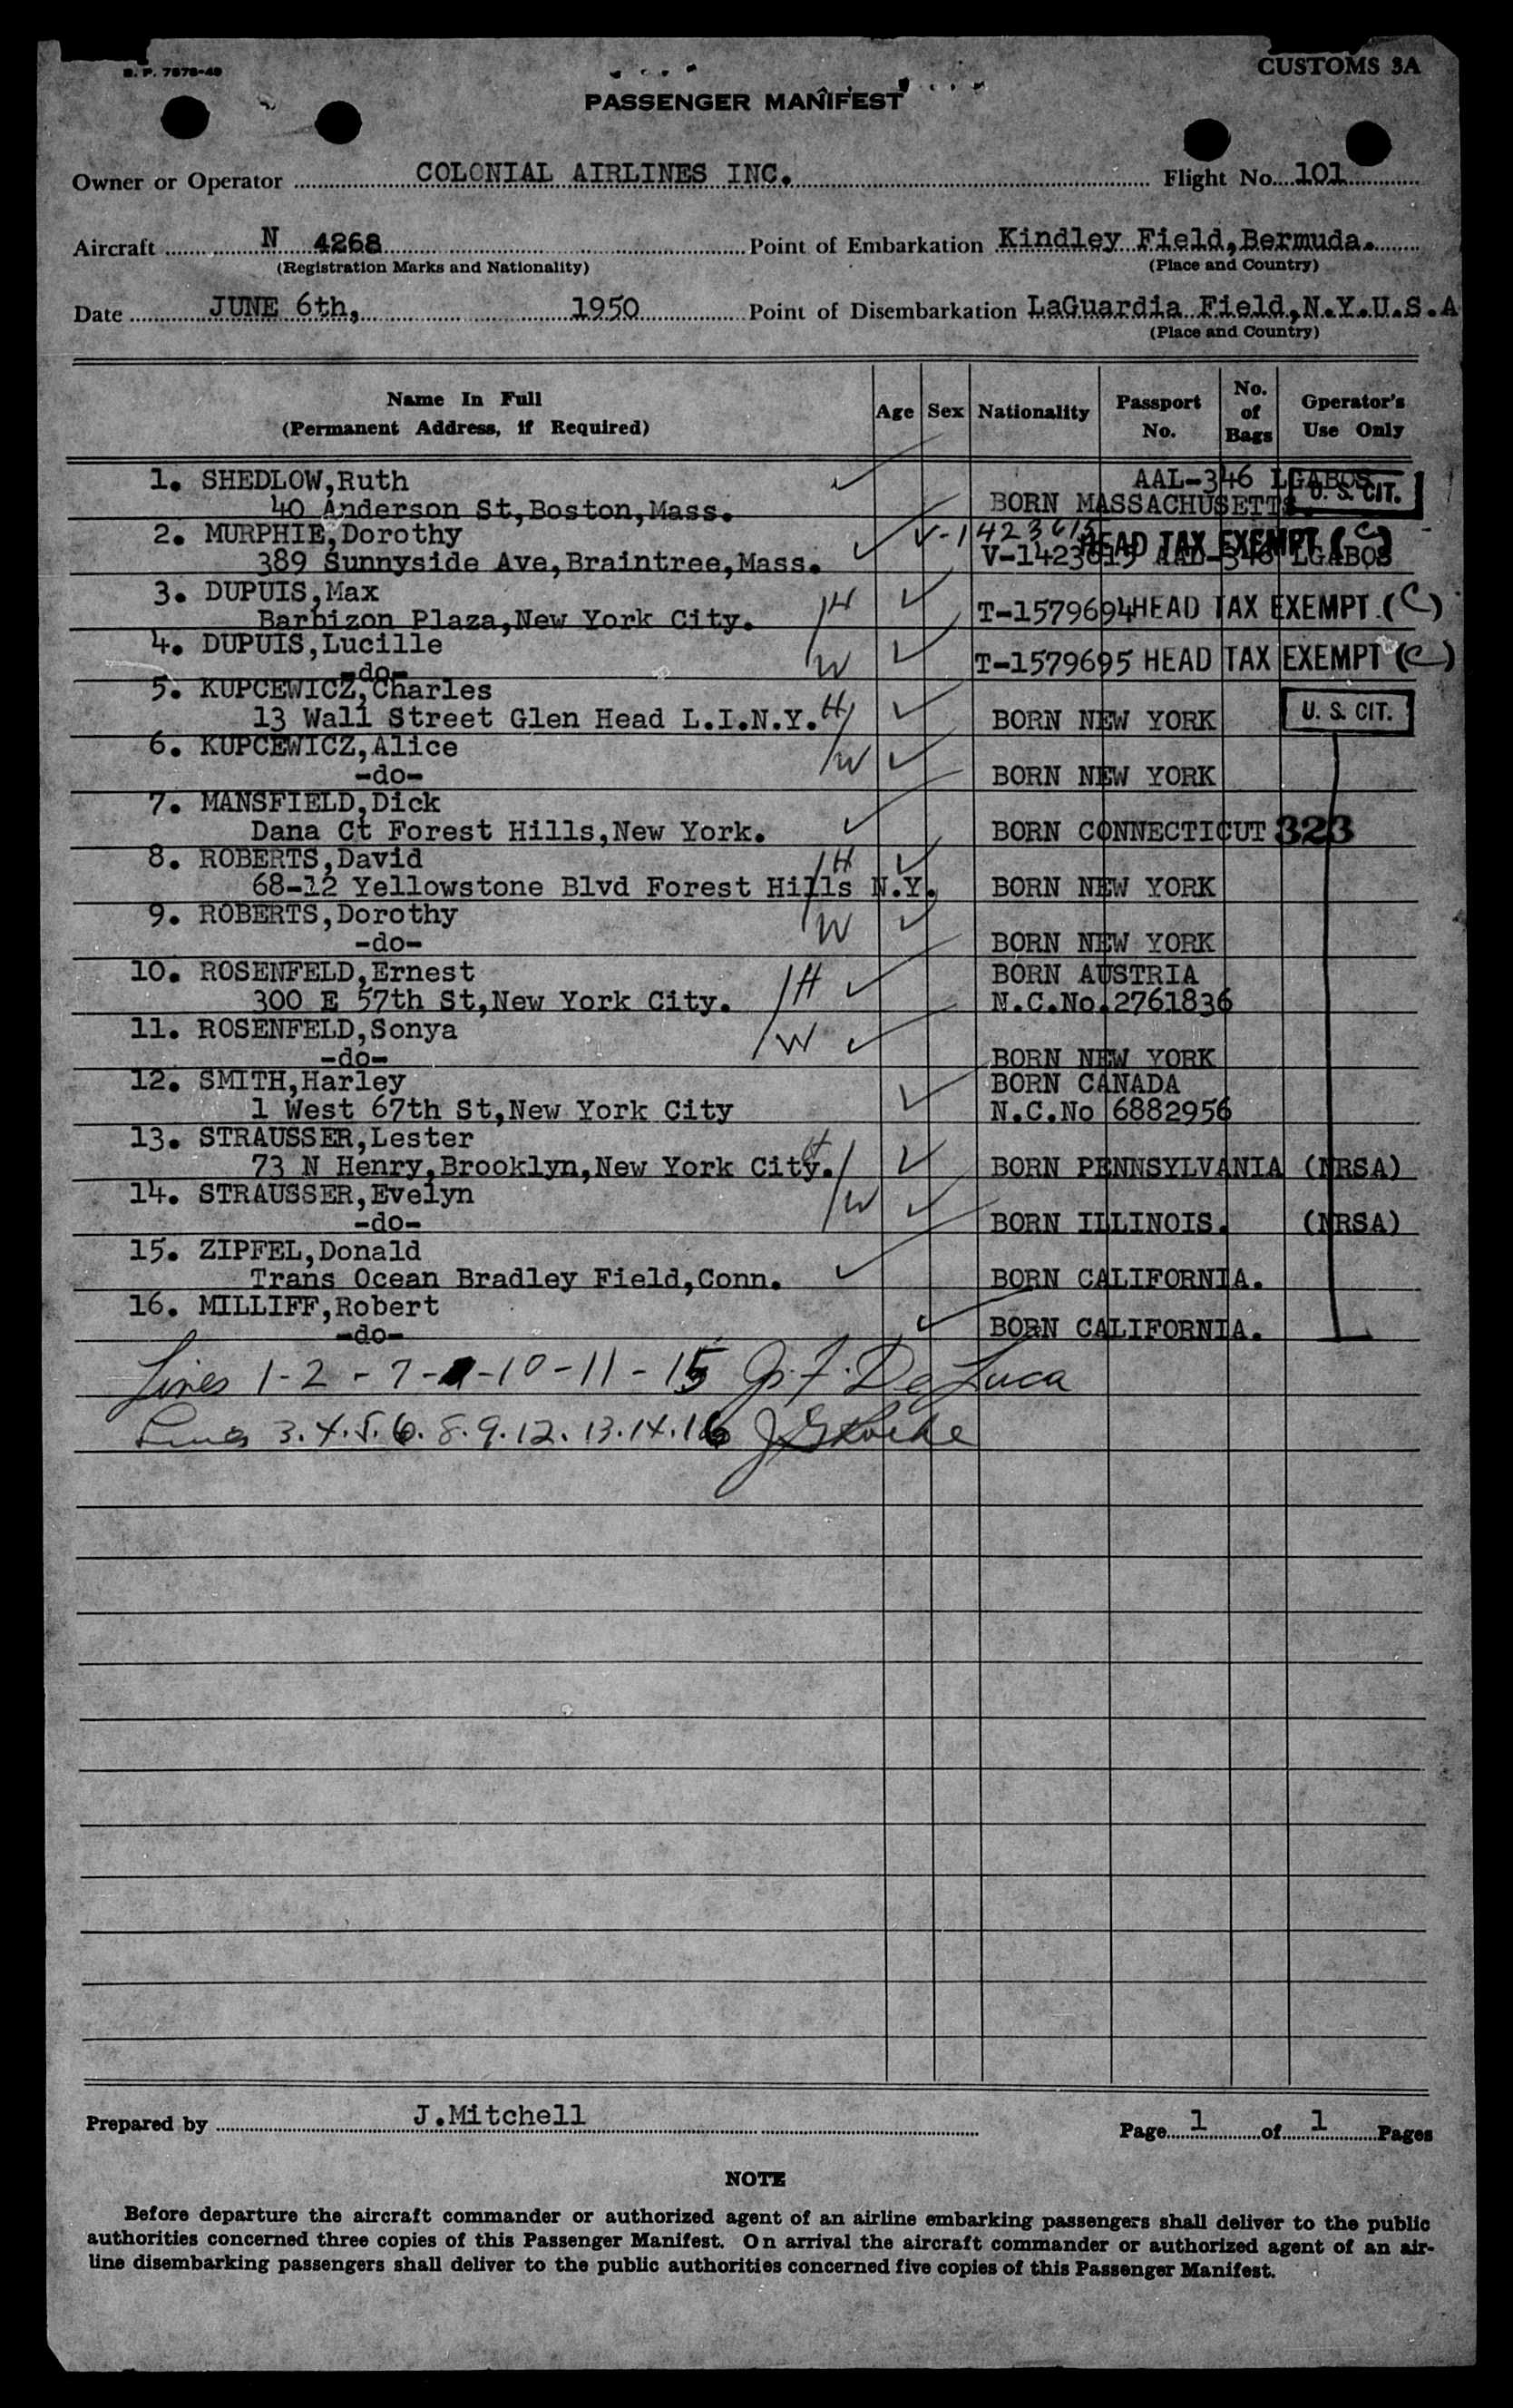 B. P. 7878-49
CUSTOMS 3A
PASSENGER MANIFEST
Owner or Operator COLONIAL AIRLINES INC. Flight No. 101
Aircraft N 4268 Point of Embarkation Kindley Field, Bermuda.
(Registration Marks and Nationality) (Place and Country)
Date JUNE 6th, 1950 Point of Disembarkation LaGuardia Field, N.Y.U.S.A
(Place and Country)
Name In Full (Permanent Address, if Required) Age Sex Nationality Passport No. No. of Bags Gperator's Use Only
1. SHEDLOW,Ruth AAL-346 LGABOS
40 Anderson St,Boston,Mass. BORN MASSACHUSETTS. U. S. CIT.
2. MURPHIE,Dorothy V-1423615 HEAD TAX EXEMPT (C)
389 Sunnyside Ave,Braintree,Mass. V-1423615 AAL-346 LGABOS
3. DUPUIS,Max
Barbizon Plaza,New York City. /H T-1579694 HEAD TAX EXEMPT (C)
4. DUPUIS,Lucille
-do- /W T-1579695 HEAD TAX EXEMPT (C)
5. KUPCEWICZ,Charles
13 Wall Street Glen Head L.I.N.Y. H/ BORN NEW YORK U. S. CIT.
6. KUPCEWICZ,Alice
-do- /W BORN NEW YORK
7. MANSFIELD,Dick
Dana Ct Forest Hills,New York. BORN CONNECTICUT 323
8. ROBERTS,David /H
68-12 Yellowstone Blvd Forest Hills N.Y. BORN NEW YORK
9. ROBERTS,Dorothy
-do- /W BORN NEW YORK
10. ROSENFELD,Ernest /H BORN AUSTRIA
300 E 57th St,New York City. N.C.No.2761836
11. ROSENFELD,Sonya /W
-do- BORN NEW YORK
12. SMITH,Harley BORN CANADA
1 West 67th St,New York City N.C.No 6882956
13. STRAUSSER,Lester
73 N Henry,Brooklyn,New York City. H/ BORN PENNSYLVANIA (NRSA)
14. STRAUSSER,Evelyn /W
-do- BORN ILLINOIS. (NRSA)
15. ZIPFEL,Donald
Trans Ocean Bradley Field,Conn. BORN CALIFORNIA.
16. MILLIFF,Robert
-do- BORN CALIFORNIA.
Lines 1-2-7- -10-11-15 J. F. De Luca
Lines 3.4.5.6.8.9.12.13.14.16
Prepared by J.Mitchell Page 1 of 1 Pages
NOTE
Before departure the aircraft commander or authorized agent of an airline embarking passengers shall deliver to the public
authorities concerned three copies of this Passenger Manifest. On arrival the aircraft commander or authorized agent of an air-
line disembarking passengers shall deliver to the public authorities concerned five copies of this Passenger Manifest.